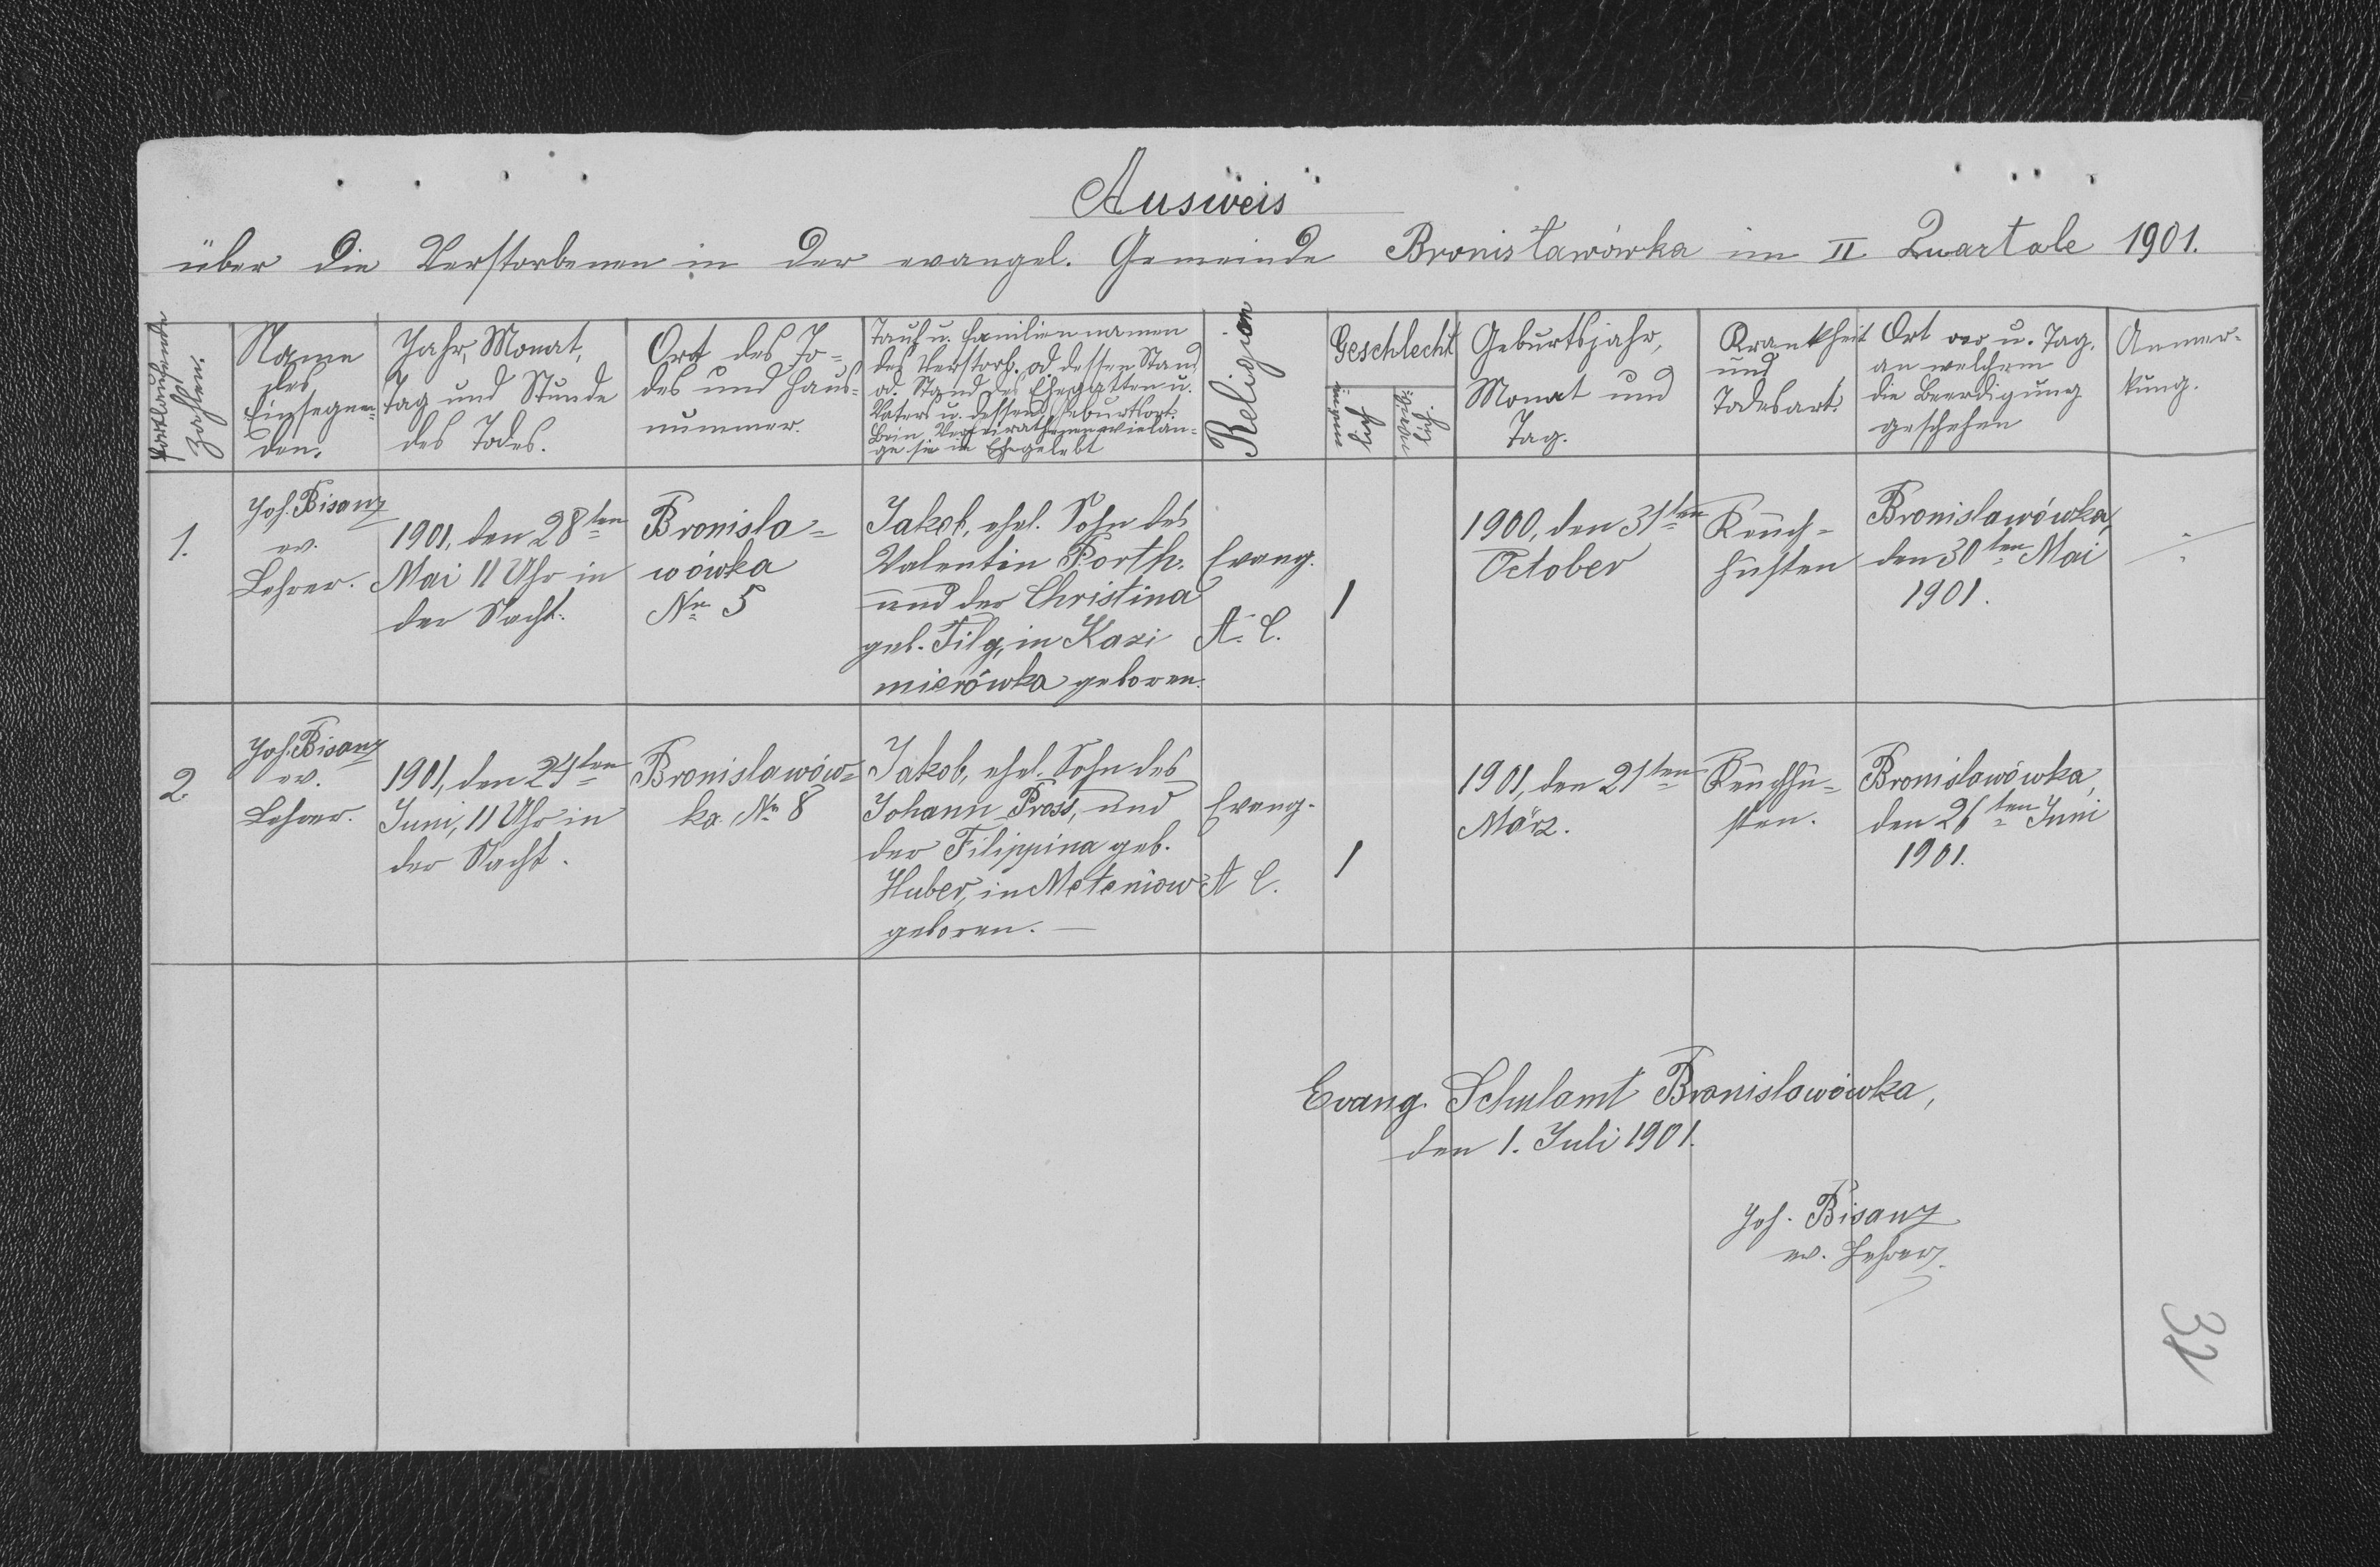 Ausweis
über die Verstorbenen in der evangel. Gemeinde Bronisławówka im II Quartale 1901.
Fortlaufende
Zahlen.
Name
des
Einsegnen-
den.
Jahr, Monat,
Tag und Stunde
des Todes.
Ort des To-
des und Haus-
nummer.
Tauf u. Familiennamen
des Verstorb. od. dessen Stand
od. Stand des Ehegatten u.
Vaters u. dessen Geburtsort.
Bein. Verheiratheten wie lan-
ge sie in Ehe gelebt
Religion
Geschlecht
männ
lich
weib
lich
Geburtsjahr,
Monat und
Tag.
Krankheit
und
Todesart.
Ort u. Tag,
an welchem
die Beerdigung
geschehen
Anmer-
kung.
1.
Joh. Bisanz
ev.
Lehrer.
1901, den 28ten
Mai 11 Uhr in
der Nacht.
Bronisla-
wówka
Nr. 5
Jakob, ehel. Sohn des
Valentin Porth.
und der Christina
geb. Filg, in Kazi
mierówka geboren.
Evang.
A. C.
1
1900, den 31ten
October
Keuch-
husten
Bronislawówka,
den 30ten Mai
1901.
2.
Joh. Bisanz
ev.
Lehrer.
1901, den 24ten
Juni, 11 Uhr in
der Nacht.
Bronislawów-
ka Nr. 8
Jakob, ehel. Sohn des
Johann Pross, und
der Filippina geb.
Huber, in Meteniow
geboren. —
Evang.
A C.
1
1901, den 21ten
März.
Keuchhu-
sten.
Bronislawówka,
den 26ten Juni
1901.
Evang. Schulamt Bronislowówka,
den 1. Juli 1901.
Joh. Bisanz
ev. Lehrer.